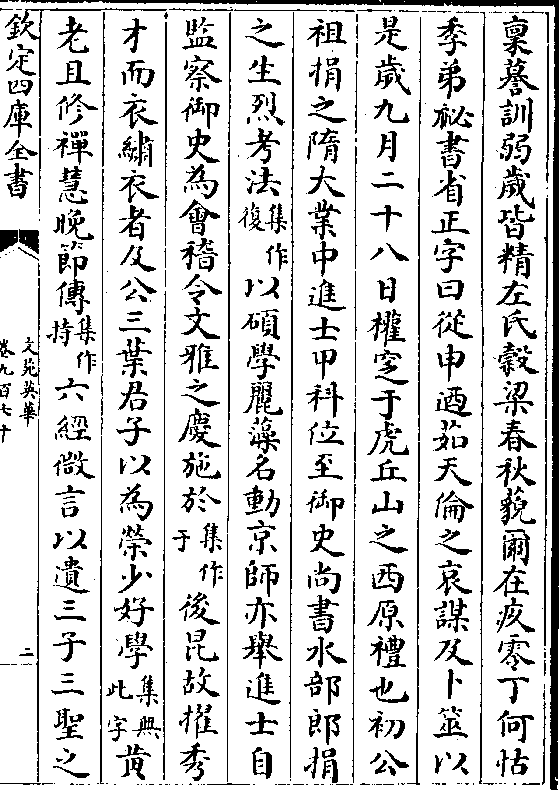 稟蓍訓弱歲皆精左氏穀梁春秋藐爾在疚零丁何怙
季弟祕書省正字曰從申迺茹天倫之哀謀及卜筮以
是歲九月二十八日權窆于虎丘山之西原禮也初公
祖捐之隋大業中進士甲科位至御史尚書水部郎捐
之生烈考法集作復以碩學麗藻名動京師亦舉進士自
監察御史為會稽令文雅之慶施於集作于後昆故擢秀
才而衣繡衣者及公三葉君子以為榮少好學集無此字黄
老且修禪慧晚節傳集作持六經微言以遺三子三聖之
欽定四庫全書
文苑英華
卷九百七十
二